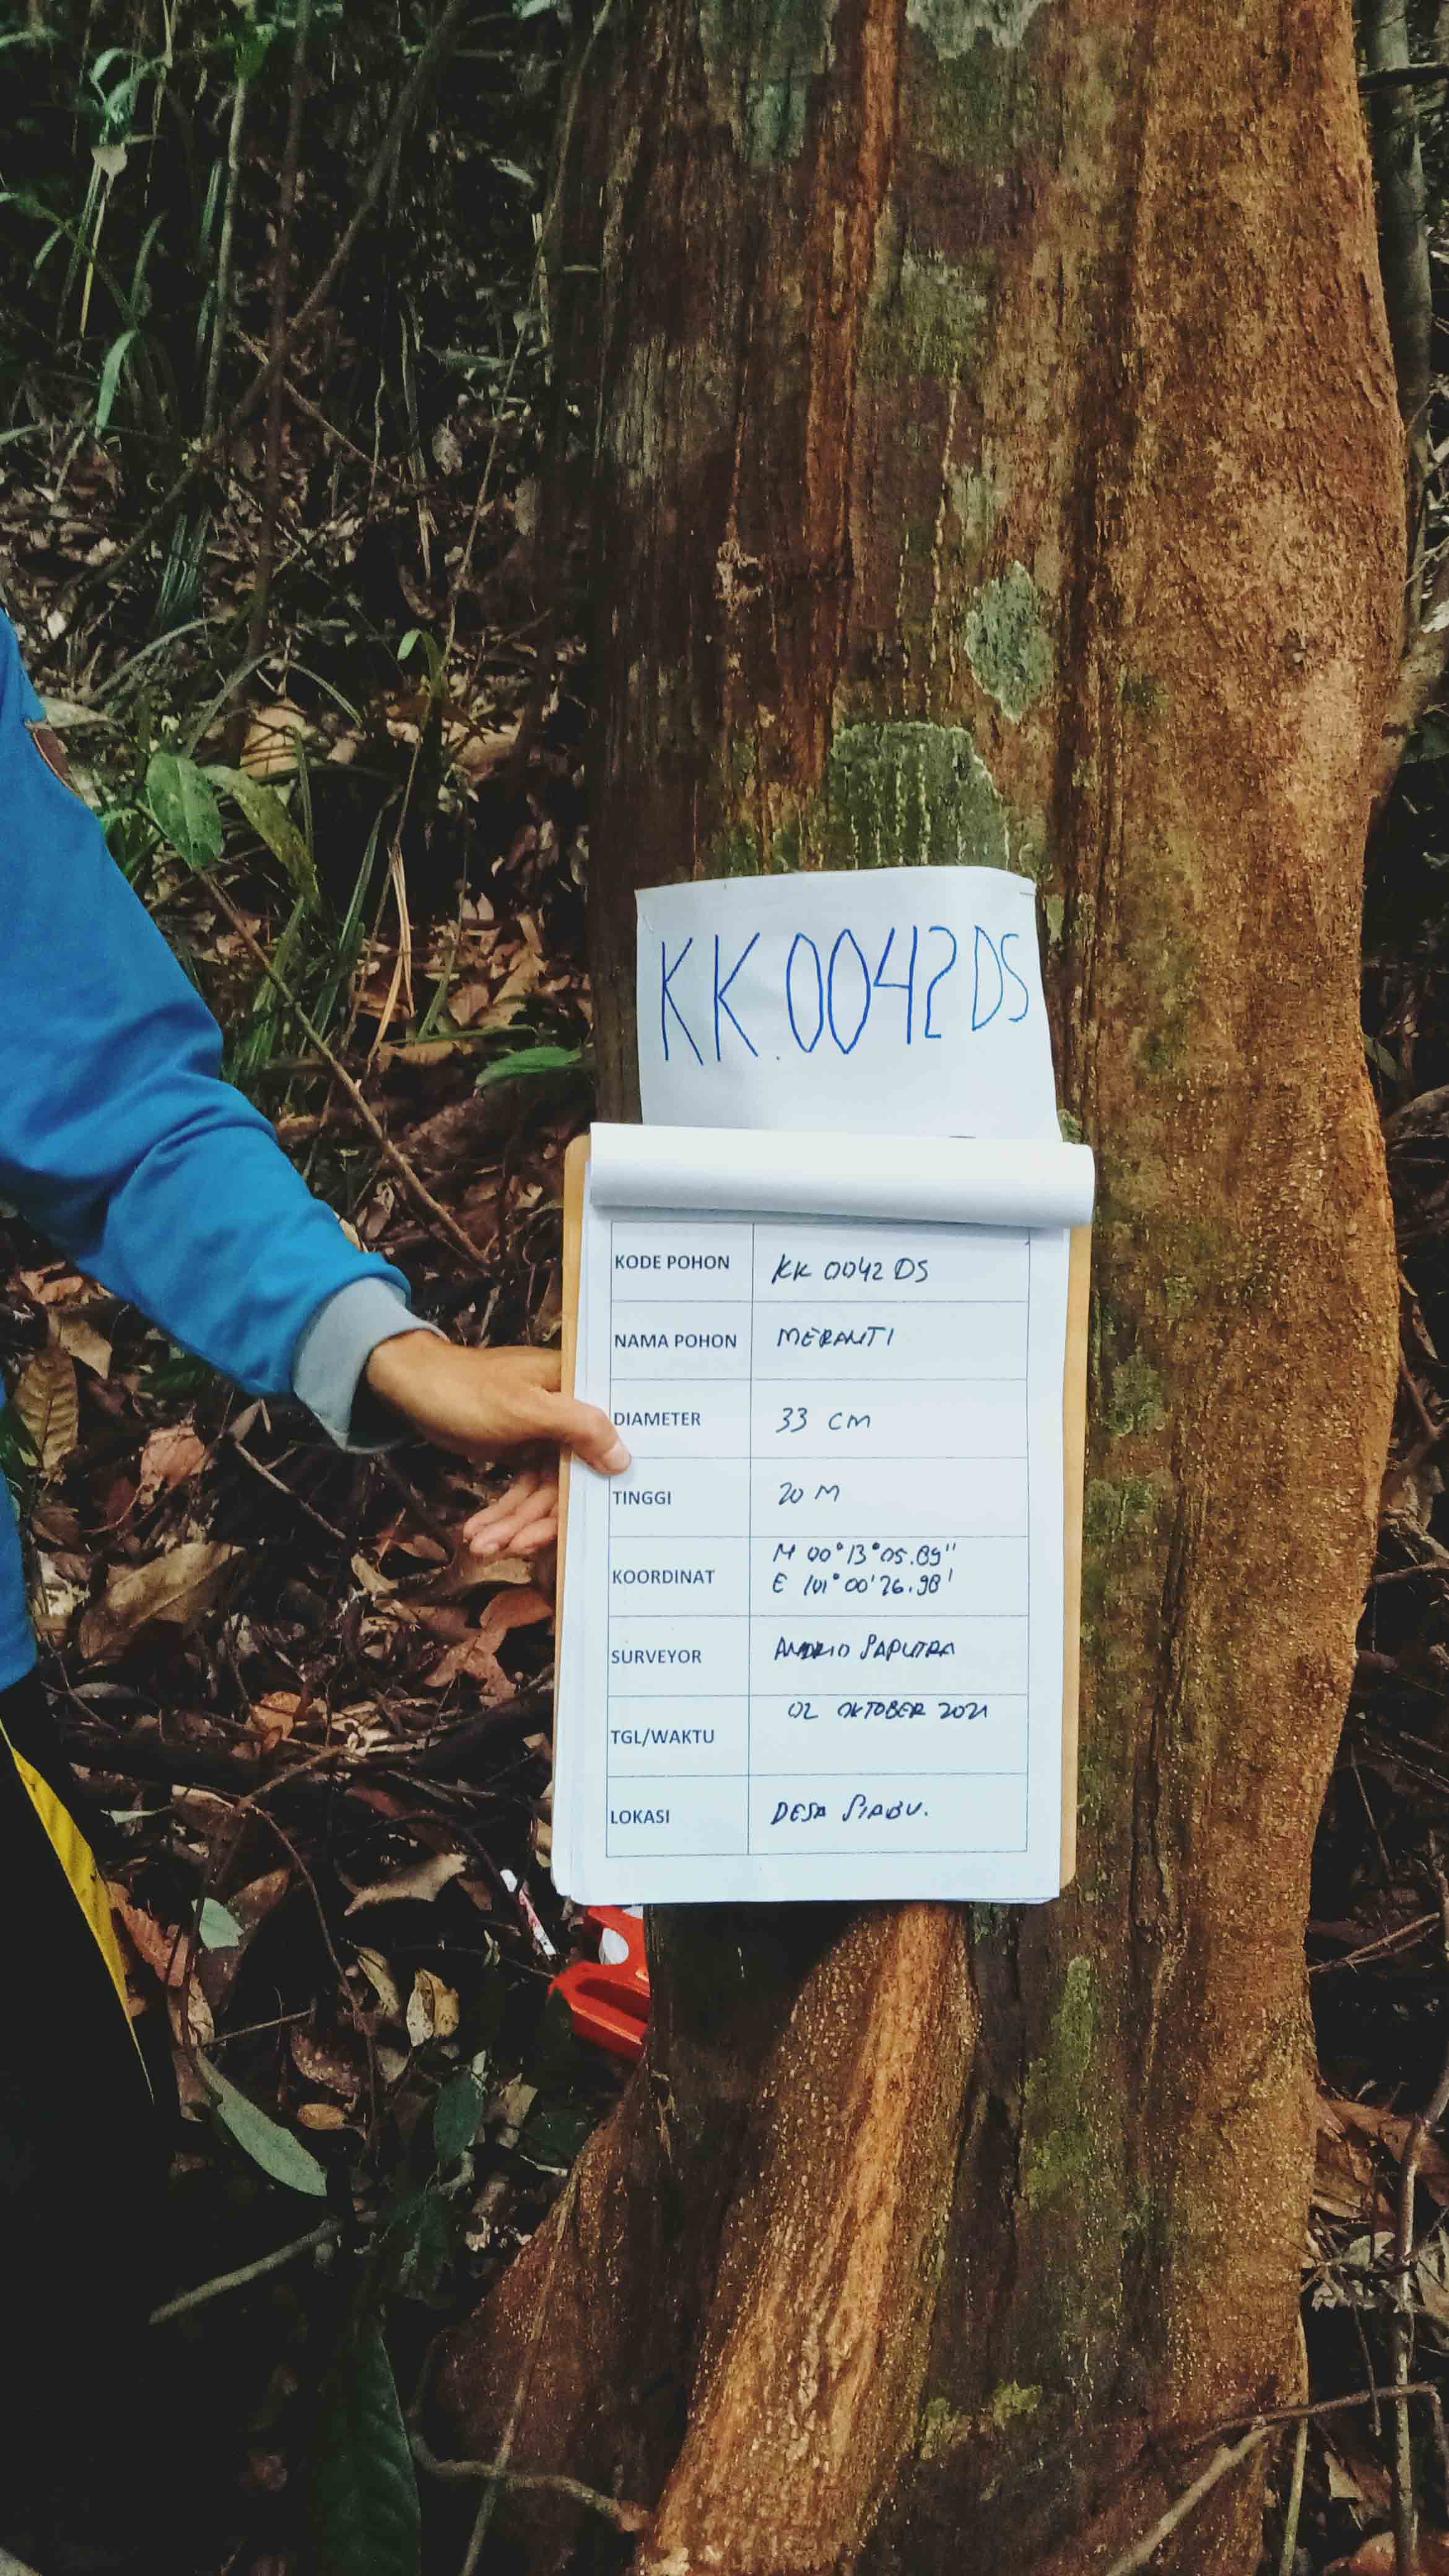 KK.0042DS
KODE POHON KK 0042 DS
NAMA POHON MERANTI
DIAMETER 33 CM
TINGGI 20 M
KOORDINAT N 00°13°05.89"
E 101°00'26.98'
SURVEYOR SAPUTRA
TGL/WAKTU 02 OKTOBER 2021
LOKASI DESA SIABU.